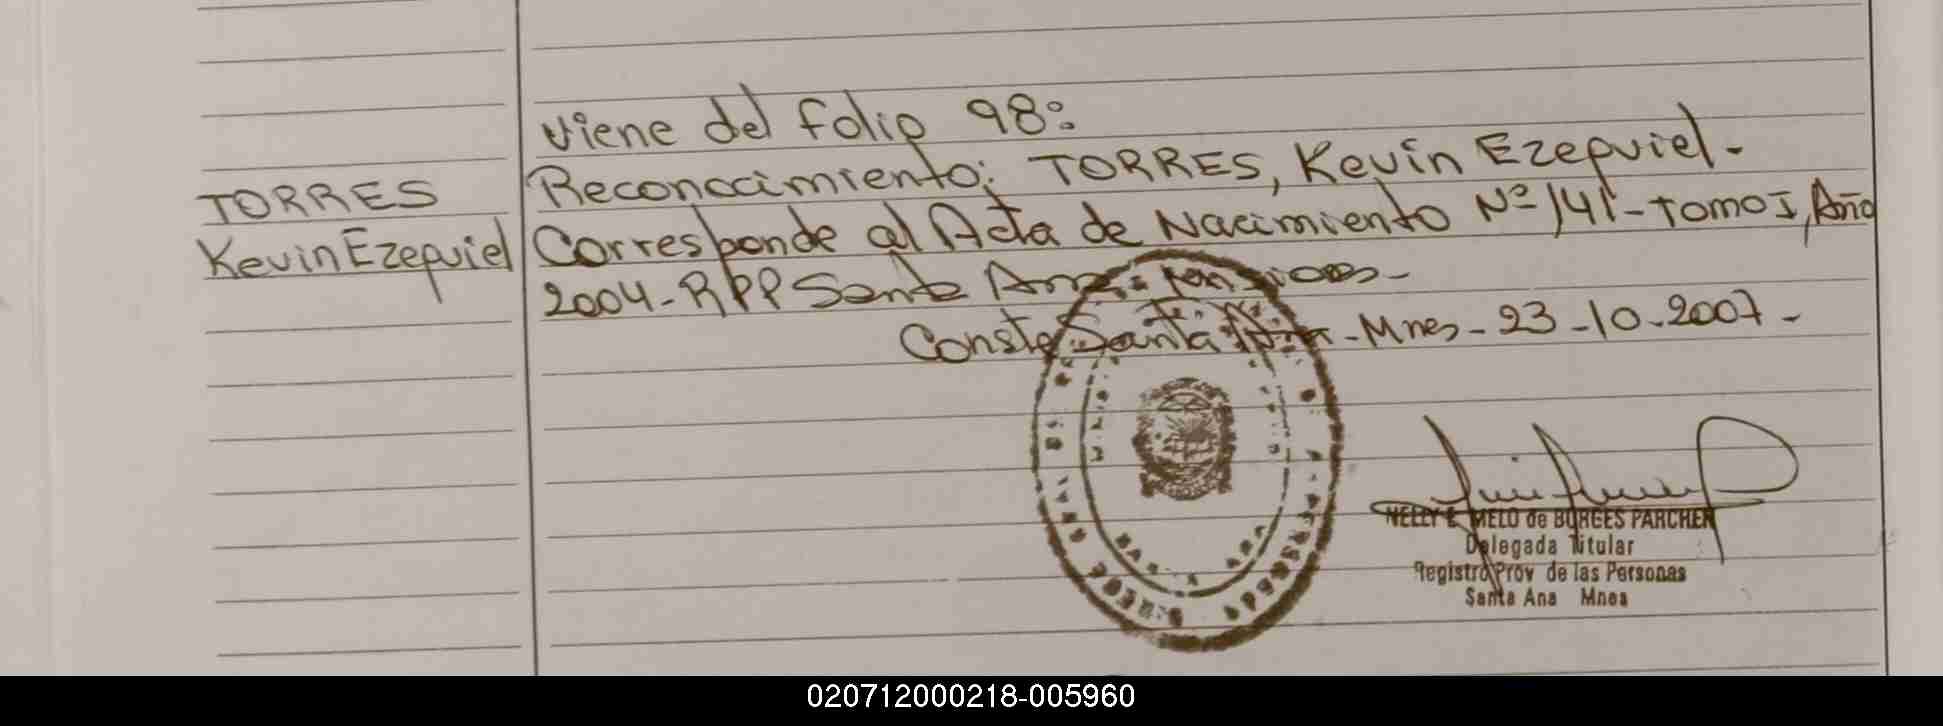 viene del folio 98:
TORRES
Kevin Ezequiel
Reconocimiento: TORRES, Kevin Ezequiel.-
Corresponde al Acta de Nacimiento Nº 141-Tomo I, Año
2004-RPP Santa Ana - Misiones-
Conste Santa Ana - Mnes - 23 -10-2007 -
NELLY E. MELO de BORGES PARCHEN
Delegada Titular
Registro Prov de las Personas
Santa Ana Mnes
020712000218-005960